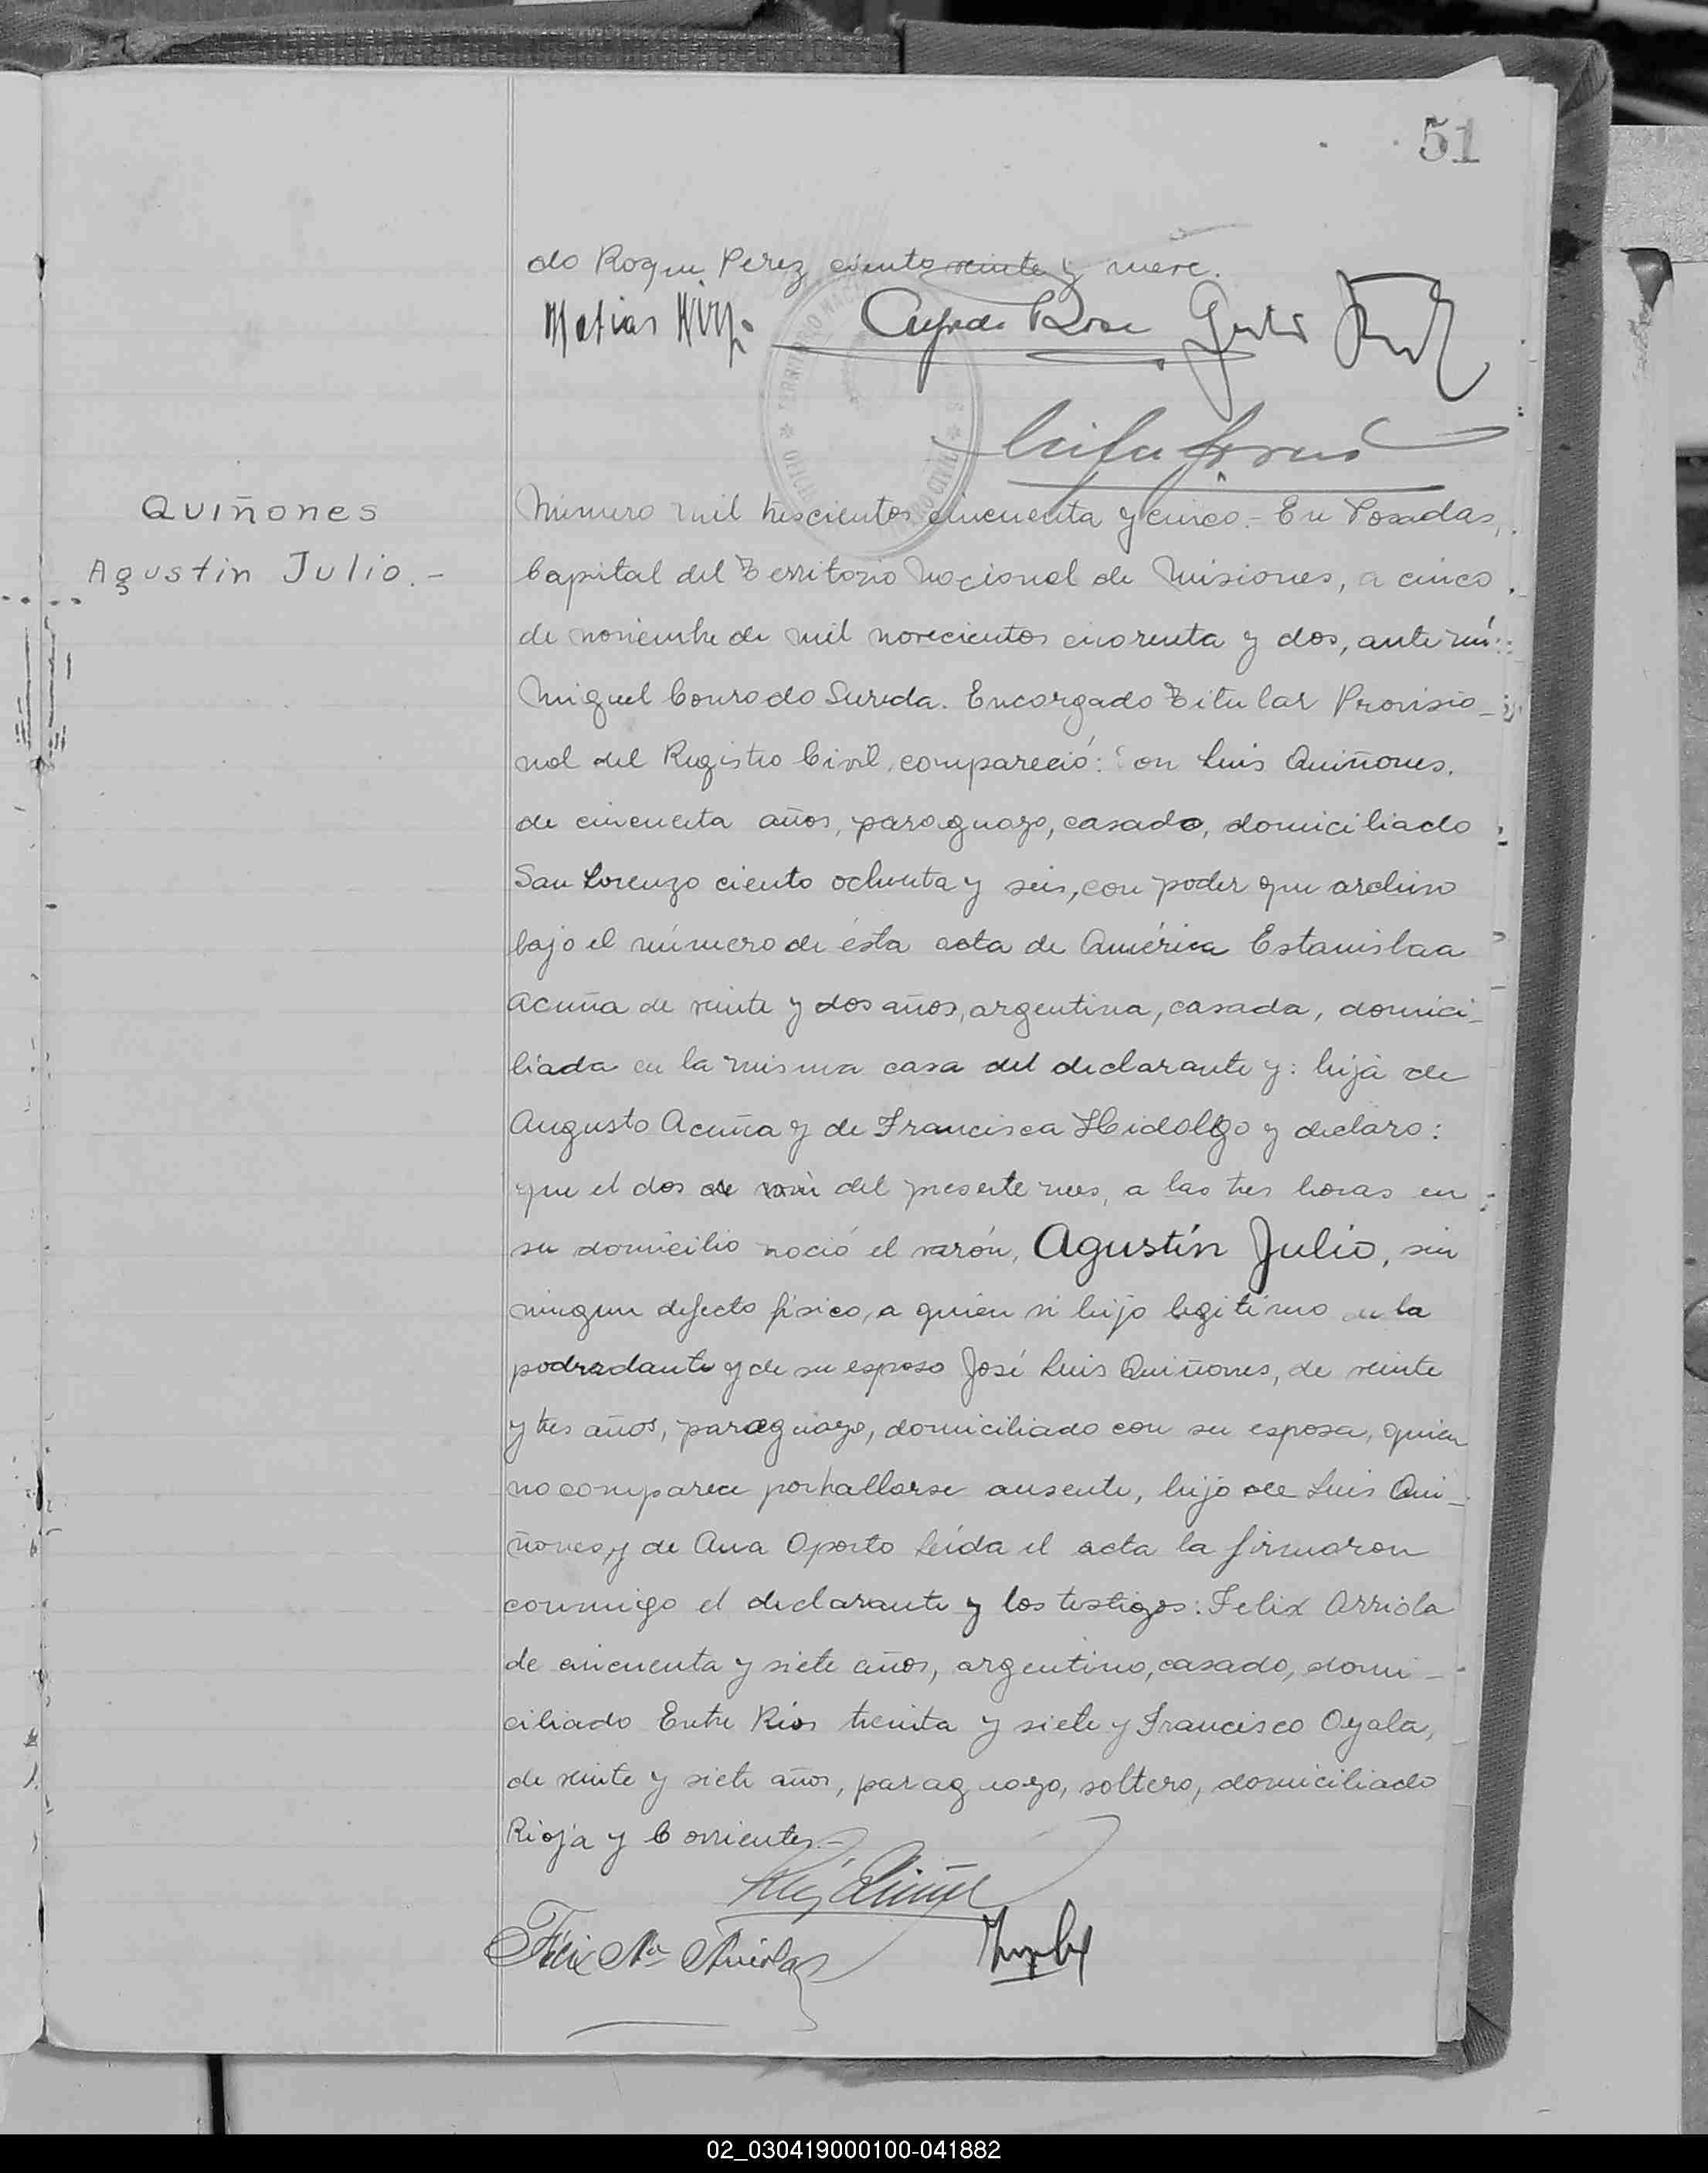 51
do Roque Perez ciento veinte y nueve.
Matias
Alfredo
Quiñones
Agustin Julio.-
Número mil trescientos cincuenta y cinco.- En Posadas,
Capital del Territorio Nacional de Misiones, a cinco
de noviembre de mil novecientos cuarenta y dos, ante mí
Miguel Conrado Sureda. Encargado Titular Provisio-
nal del Registro Civil, compareció: Don Luis Quiñones.
de cincuenta años, paraguayo, casado, domiciliado
San Lorenzo ciento ochenta y seis, con poder que archivo
bajo el número de ésta acta de América Estanislaa
Acuña de veinte y dos años, argentina, casada, domici-
liada en la misma casa del declarante y: hija de
Augusto Acuña y de Francisca Hidalgo y declaro:
que el dos de del presente mes, a las tres horas en
su domicilio nació el varón, Agustín Julio, sin
ningun defecto físico, a quien vi hijo legitimo de la
podredante y de su esposo José Luis Quiñones, de veinte
y tres años, paraguayo, domiciliado con su esposa, quien
no comparece por hallarse ausente, hijo de Luis Qui-
ñones y de Ana Oporto leída el acta la firmaron
conmigo el declarante y los testigos: Felix Arriola
de cincuenta y siete años, argentino, casado, domi-
ciliado Entre Ríos treinta y siete y Francisco Oyala,
de veinte y siete años, paraguayo, soltero, domiciliado
Rioja y Corrientes.-
Félix Ma Arriola
02_030419000100-041882